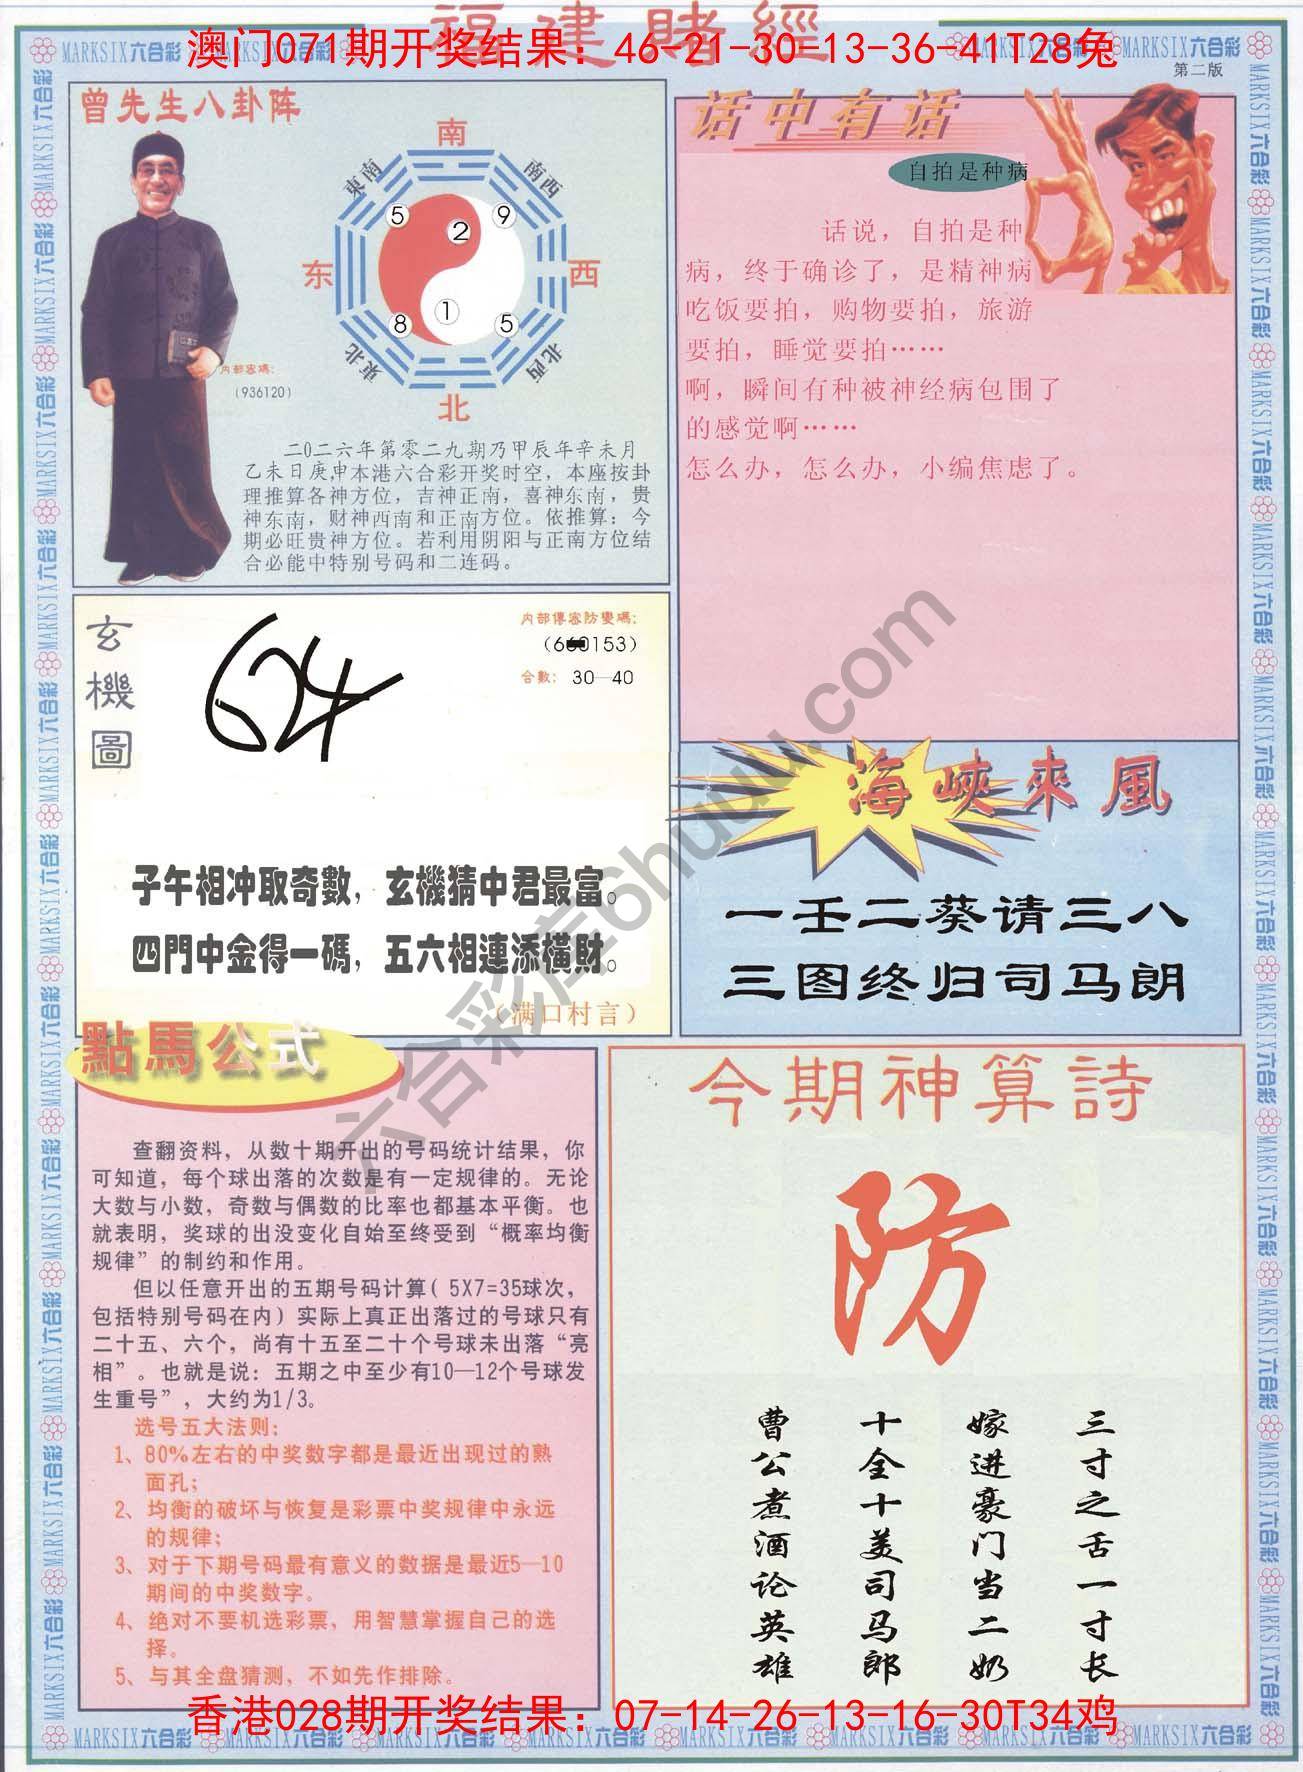 福建賭經
澳门071期开奖结果：46-21-30-13-36-41T28兔
MARKSIX六合彩
第二版
曾先生八卦阵
南
東南
南西
5
9
2
东
西
1
8
5
東北
北西
北
内部密碼：
(936120)
二0二六年第零二九期乃甲辰年辛未月
乙未日庚申本港六合彩开奖时空，本座按卦
理推算各神方位，吉神正南，喜神东南，贵
神东南，财神西南和正南方位。依推算：今
期必旺贵神方位。若利用阴阳与正南方位结
合必能中特别号码和二连码。
话中有话
自拍是种病
话说，自拍是种
病，终于确诊了，是精神病
吃饭要拍，购物要拍，旅游
要拍，睡觉要拍……
啊，瞬间有种被神经病包围了
的感觉啊……
怎么办，怎么办，小编焦虑了。
玄機圖
624
内部傳密防變碼：
合數： 30—40
子午相冲取奇數，玄機猜中君最富。
四門中金得一碼，五六相連添橫財。
（满口村言）
海峽來風
一壬二葵请三八
三图终归司马朗
點馬公式
查翻资料，从数十期开出的号码统计结果，你
可知道，每个球出落的次数是有一定规律的。无论
大数与小数，奇数与偶数的比率也都基本平衡。也
就表明，奖球的出没变化自始至终受到“概率均衡
规律”的制约和作用。
但以任意开出的五期号码计算( 5X7=35球次，
包括特别号码在内）实际上真正出落过的号球只有
二十五、六个，尚有十五至二十个号球未出落“亮
相”。也就是说：五期之中至少有10—12个号球发
生重号”，大约为1/3。
选号五大法则：
1、80%左右的中奖数字都是最近出现过的熟
面孔；
2、均衡的破坏与恢复是彩票中奖规律中永远
的规律；
3、对于下期号码最有意义的数据是最近5—10
期间的中奖数字。
4、绝对不要机选彩票，用智慧掌握自己的选
择。
5、与其全盘猜测，不如先作排除。
今期神算詩
防
三寸之舌一寸长
嫁进豪门当二奶
十全十美司马郎
曹公煮酒论英雄
六合彩库6huuu.com
香港028期开奖结果：07-14-26-13-16-30T34鸡
MARKSIX六合彩